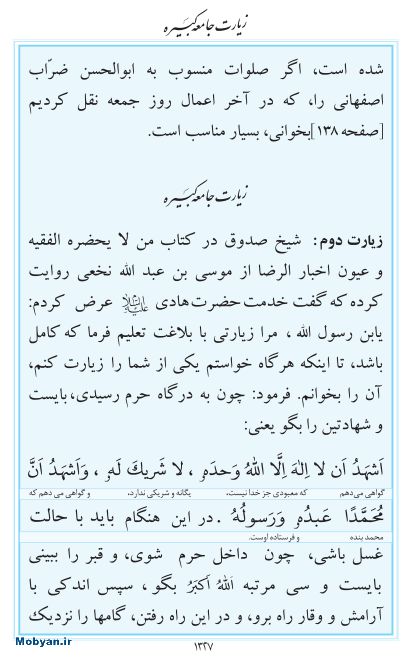 زیارت جامعه کبیره
شده است، اگر صلوات منسوب به ابوالحسن ضرّاب
اصفهانی را، که در آخر اعمال روز جمعه نقل کردیم
[صفحه ۱۳۸]بخوانی، بسیار مناسب است.
زیارت جامعه کبیره
زیارت دوم: شیخ صدوق در کتاب من لا یحضره الفقیه
و عیون اخبار الرضا از موسی بن عبد الله نخعی روایت
کرده که گفت خدمت حضرت هادی علیه‌السلام عرض کردم:
یابن رسول الله ، مرا زیارتی با بلاغت تعلیم فرما که کامل
باشد، تا اینکه هرگاه خواستم یکی از شما را زیارت کنم،
آن را بخوانم. فرمود: چون به درگاه حرم رسیدی، بایست
و شهادتین را بگو یعنی:
اَشْهَدُ اَن لا اِلٰهَ اِلَّا اللهُ وَحدَهُ ، لا شَریكَ لَهُ ، وَاَشْهَدُ اَنَّ
گواهی می‌دهم که معبودی جز خدا نیست، یگانه و شریکی ندارد، و گواهی می دهم که
مُحَمَّدًا عَبدُهُ وَرَسولُهُ . در این هنگام باید با حالت
محمد بنده و فرستاده اوست.
غسل باشی، چون داخل حرم شوی، و قبر را ببینی
بایست و سی مرتبه اَللهُ اَکبَرُ بگو ، سپس اندکی با
آرامش و وقار راه برو، و در این راه رفتن، گامها را نزدیک
۱۳۲۷
Mobyan.ir